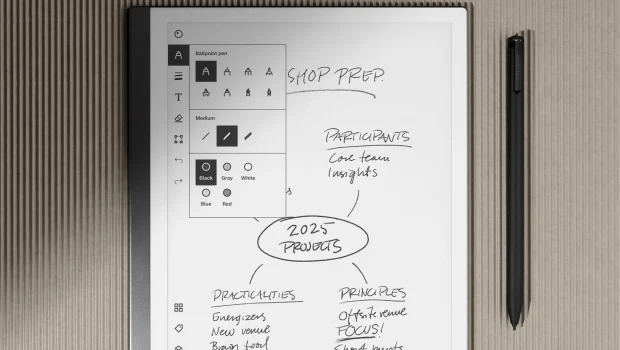 Ballpoint pen
SHOP PREP.
Medium
PARTICIPANTS
Core team
Insights
Black
Gray
White
Blue
Red
s
2025
PROJECTS
PRACTICALITIES
Energizers
New venue
Brain food
PRINCIPLES
Offsite venue
FOCUS!